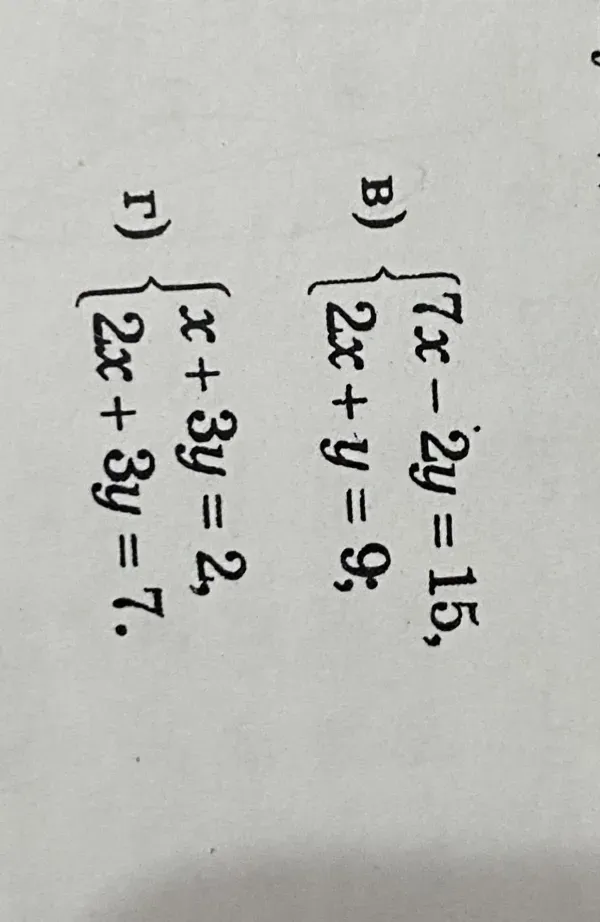 в) { 7x − 2y = 15,
2x + y = 9;
г) { x + 3y = 2,
2x + 3y = 7.